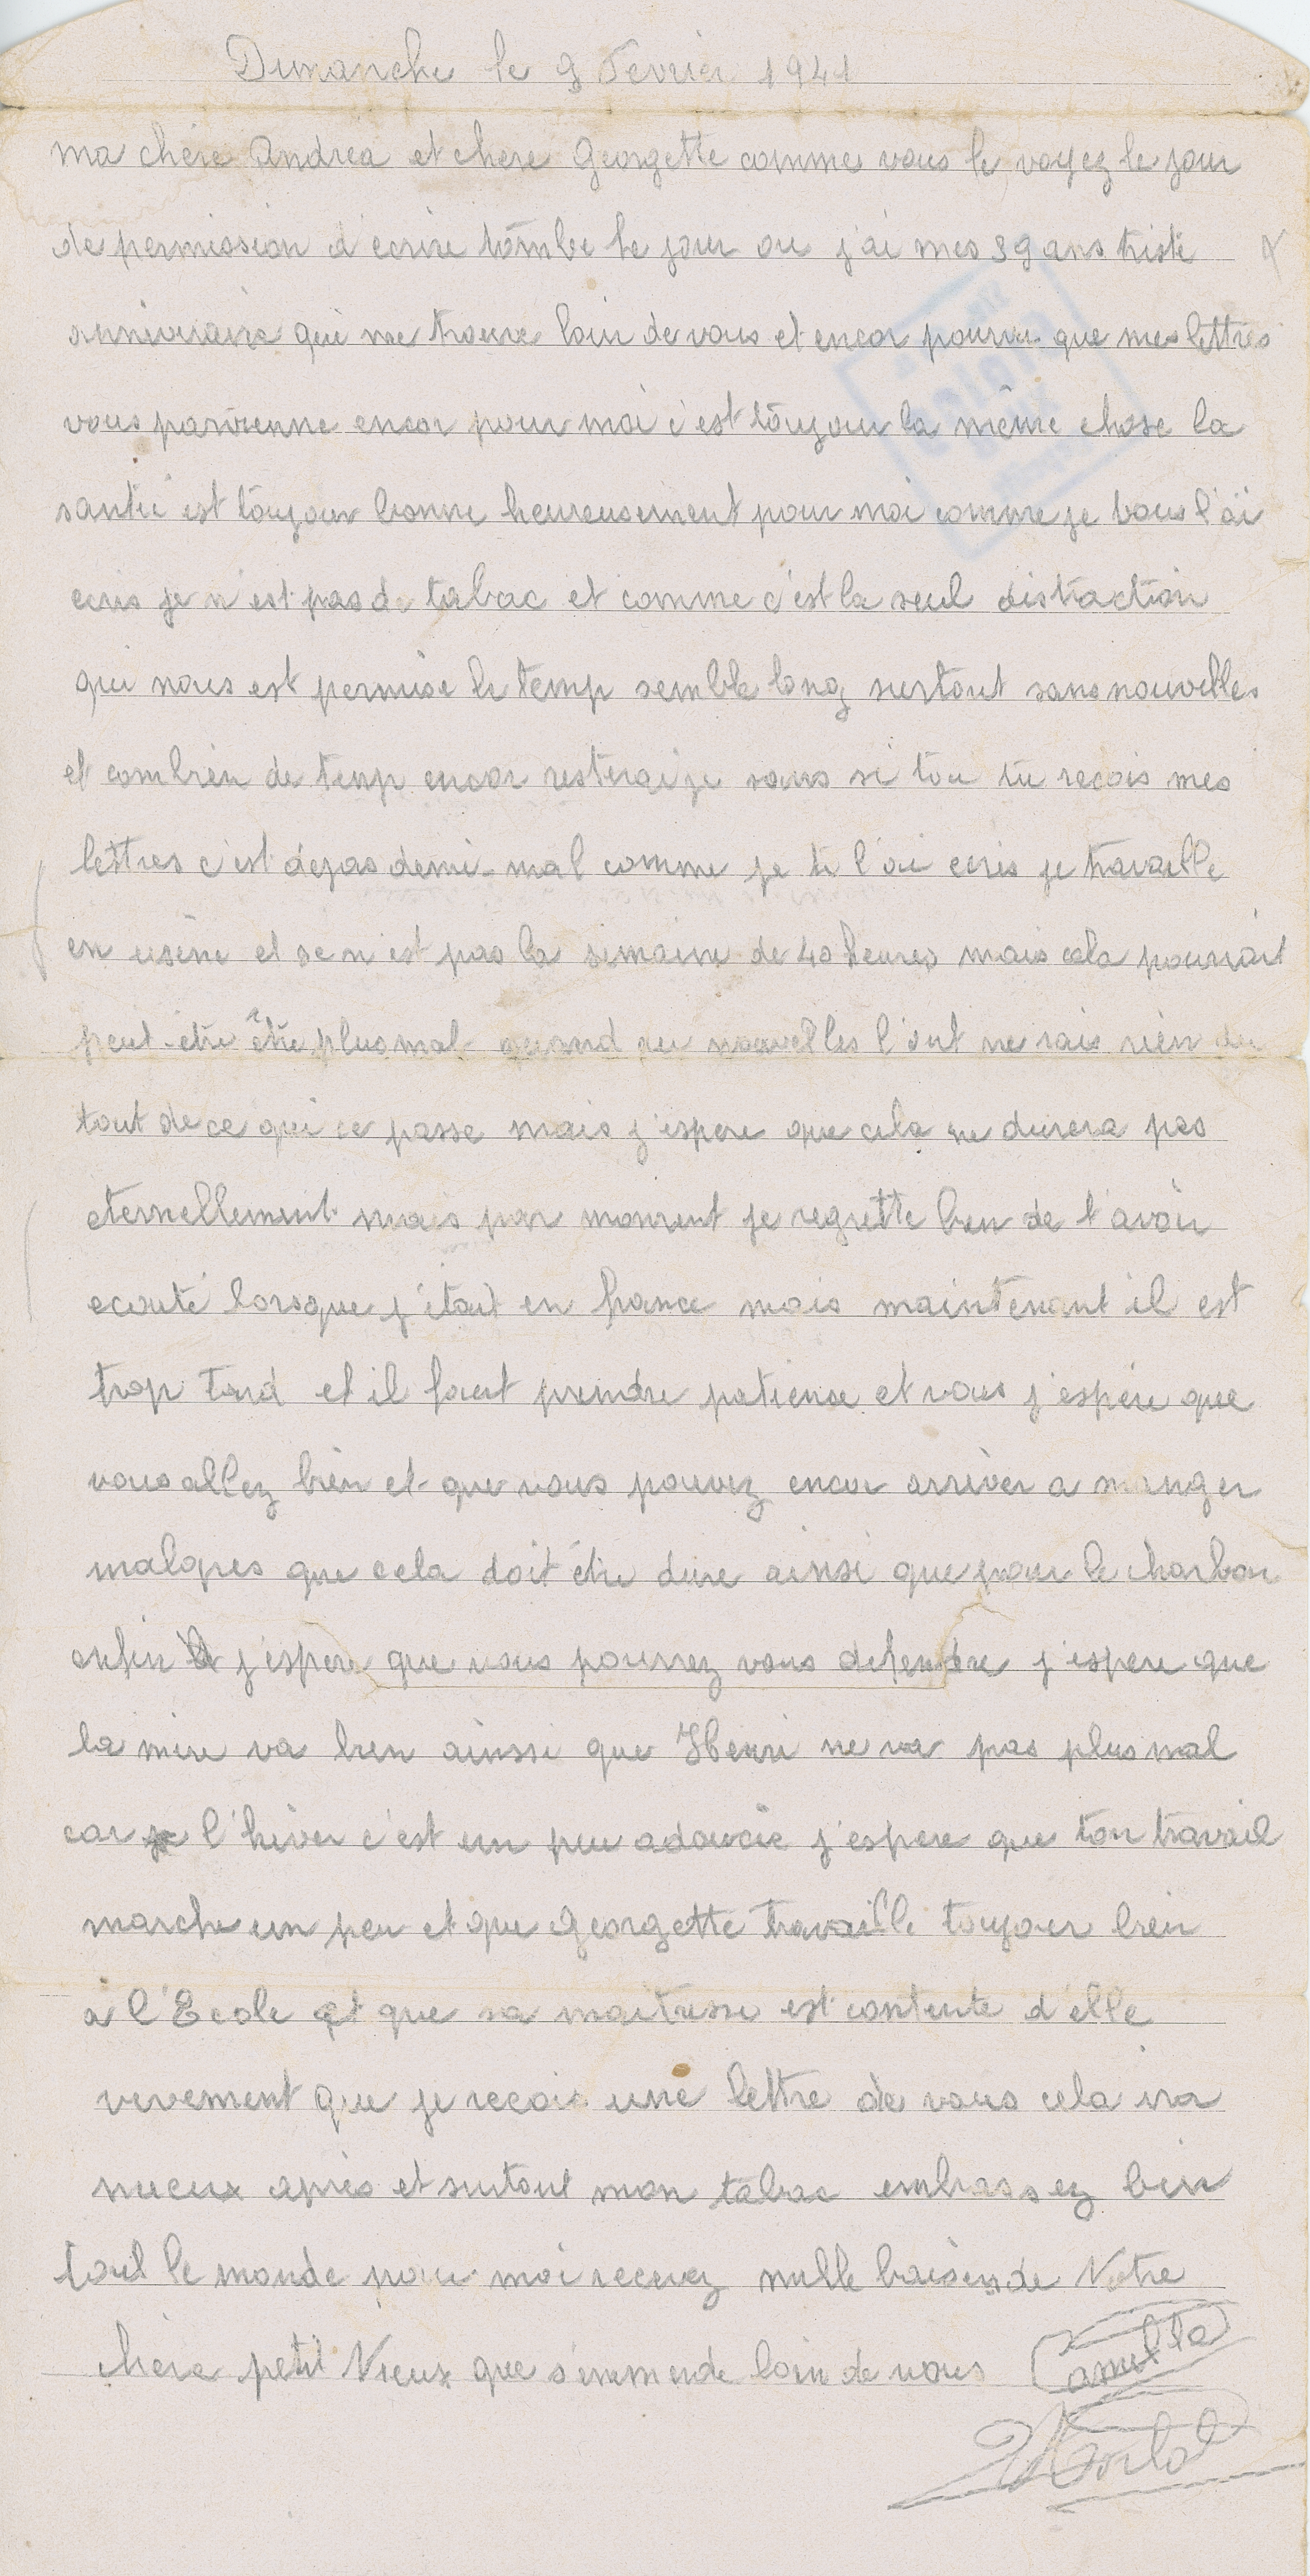 Dimanche le 9 Fevrier 1941
ma chère Andréa et chere Georgette comme vous le voyez le jour
de permission d'ecrire tombe le jour ou j'ai mes 39 ans triste
anniversaire qui me trouve loin de vous et encor pourvu que mes lettres
vous parvienne encor pour moi c'est toujour la même chose la
santé est toujour bonne heureusement pour moi comme je vous l'ai
ecris je n'est pas de tabac et comme c'est la seul distraction
qui nous est permise le temp semble long surtout sans nouvelles
et combien de temp encor resterai je sans si tou tu recois mes
lettres c'est dejas demi-mal comme je te l'ai ecris je travaille
en usine et se n'est pas la semaine de 40 heures mais cela pourrait
peut-etre être plus mal quand au nouvelles l'ont ne sais rien du
tout de ce qui ce passe mais j'espere que cela ne durera pas
eternellement mais par moment je regrette bien de t'avoir
ecouté lorsque j'étais en france mais maintenant il est
trop tard et il faut prendre patience et vous j'espère que
vous allez bien et que vous pouvez encor arriver a manger
malgres que cela doit être dure ainsi que pour le charbon
enfin j'espere que vous pourrez vous defendre j'espere que
la mere va bien ainsi que Henri ne va pas plus mal
car l'hiver c'est un peu adoucie j'espere que ton travail
marche un peu et que Georgette travaille toujour bien
à l'Ecole et que sa maitresse est contente d'elle
vivement que je recois une lettre de vous cela ira
mieux après et surtout mon tabac embrassez bien
tout le monde pour moi recevez mille baisers de Votre
chere petit Vieux que s'emmerde loin de vous